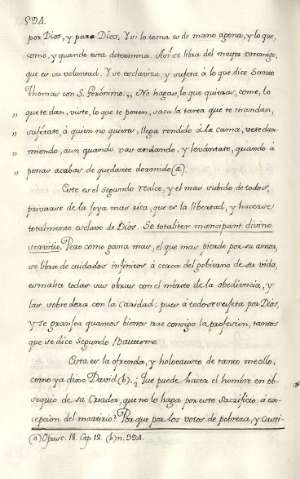 594.
por Dios, y para Dios. Y si la toma es de mano agena, y lo que,
como, y quando este determina. Así se libra del mayor enemigo,
que es su voluntad. Y se esclaviza, y sujeta á lo que dice Santo
Thomas con S. Geronimo: „ No hagas, lo que quieras, come, lo
„ que te dan, viste, lo que te ponen, saca la tarea que te mandan,
„ sujetate á quien no quieres, llega rendido á la cama, vete dur-
„ miendo, aun quando vas andando, y levantate, quando á
„ penas acabas de quedarte dormido (a).
Este es el segundo realce, y el mas subido de todos,
privarse de la joya mas rica, que es la libertad, y hacerse
totalmente esclavo de Dios. Se totaliter mancipant divino
servitio. Pero como gana mas, el que mas pierde por su amor,
se libra de cuidados infinitos á cerca del gobierno de su vida,
esmalta todas sus obras con el merito de la obediencia, y
las sobredora con la Caridad; pues á todos se sujeta por Dios,
y se grangea quantos bienes trae consigo la profesion, tantos
que se dice segundo Bautismo.
Esta es la ofrenda, y holocausto de tanto meollo,
como ya dixo David (b). ¿Que puede hacer el hombre en ob-
sequio de su Criador, que no lo haga por este Sacrificio á ex-
cepcion del martirio? Por que por los votos de pobreza, y Casti-
(a) Opusc. 18. Cap. 12. (b) n. 594.